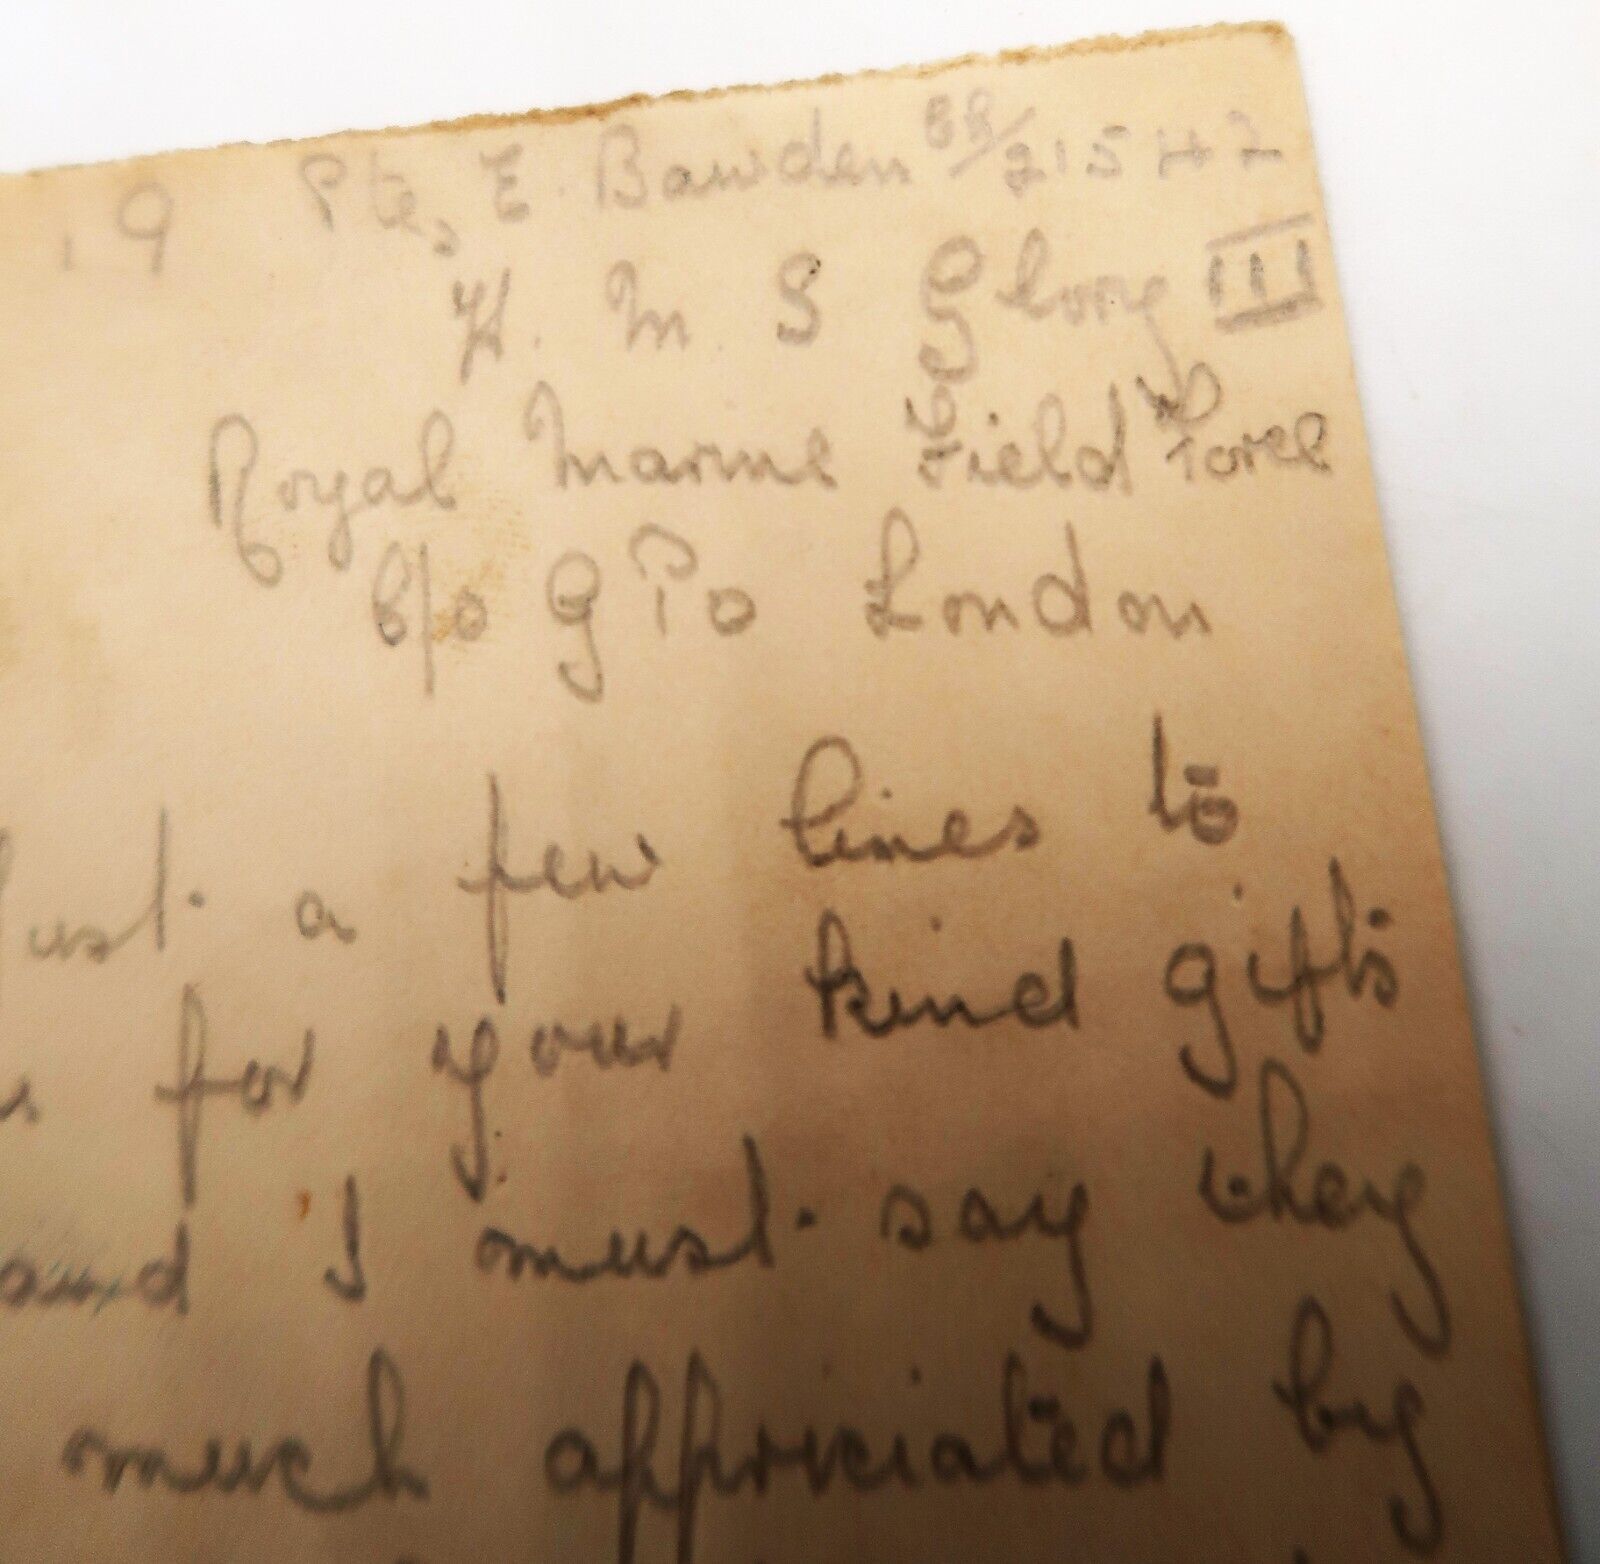 19 Pte, E. Bawden 88/21542
H. M. S Glory III
Royal Marine Field Force
C/o G P o London
Just a few lines to
for your kind gifts
and I must say they
much appriciated by